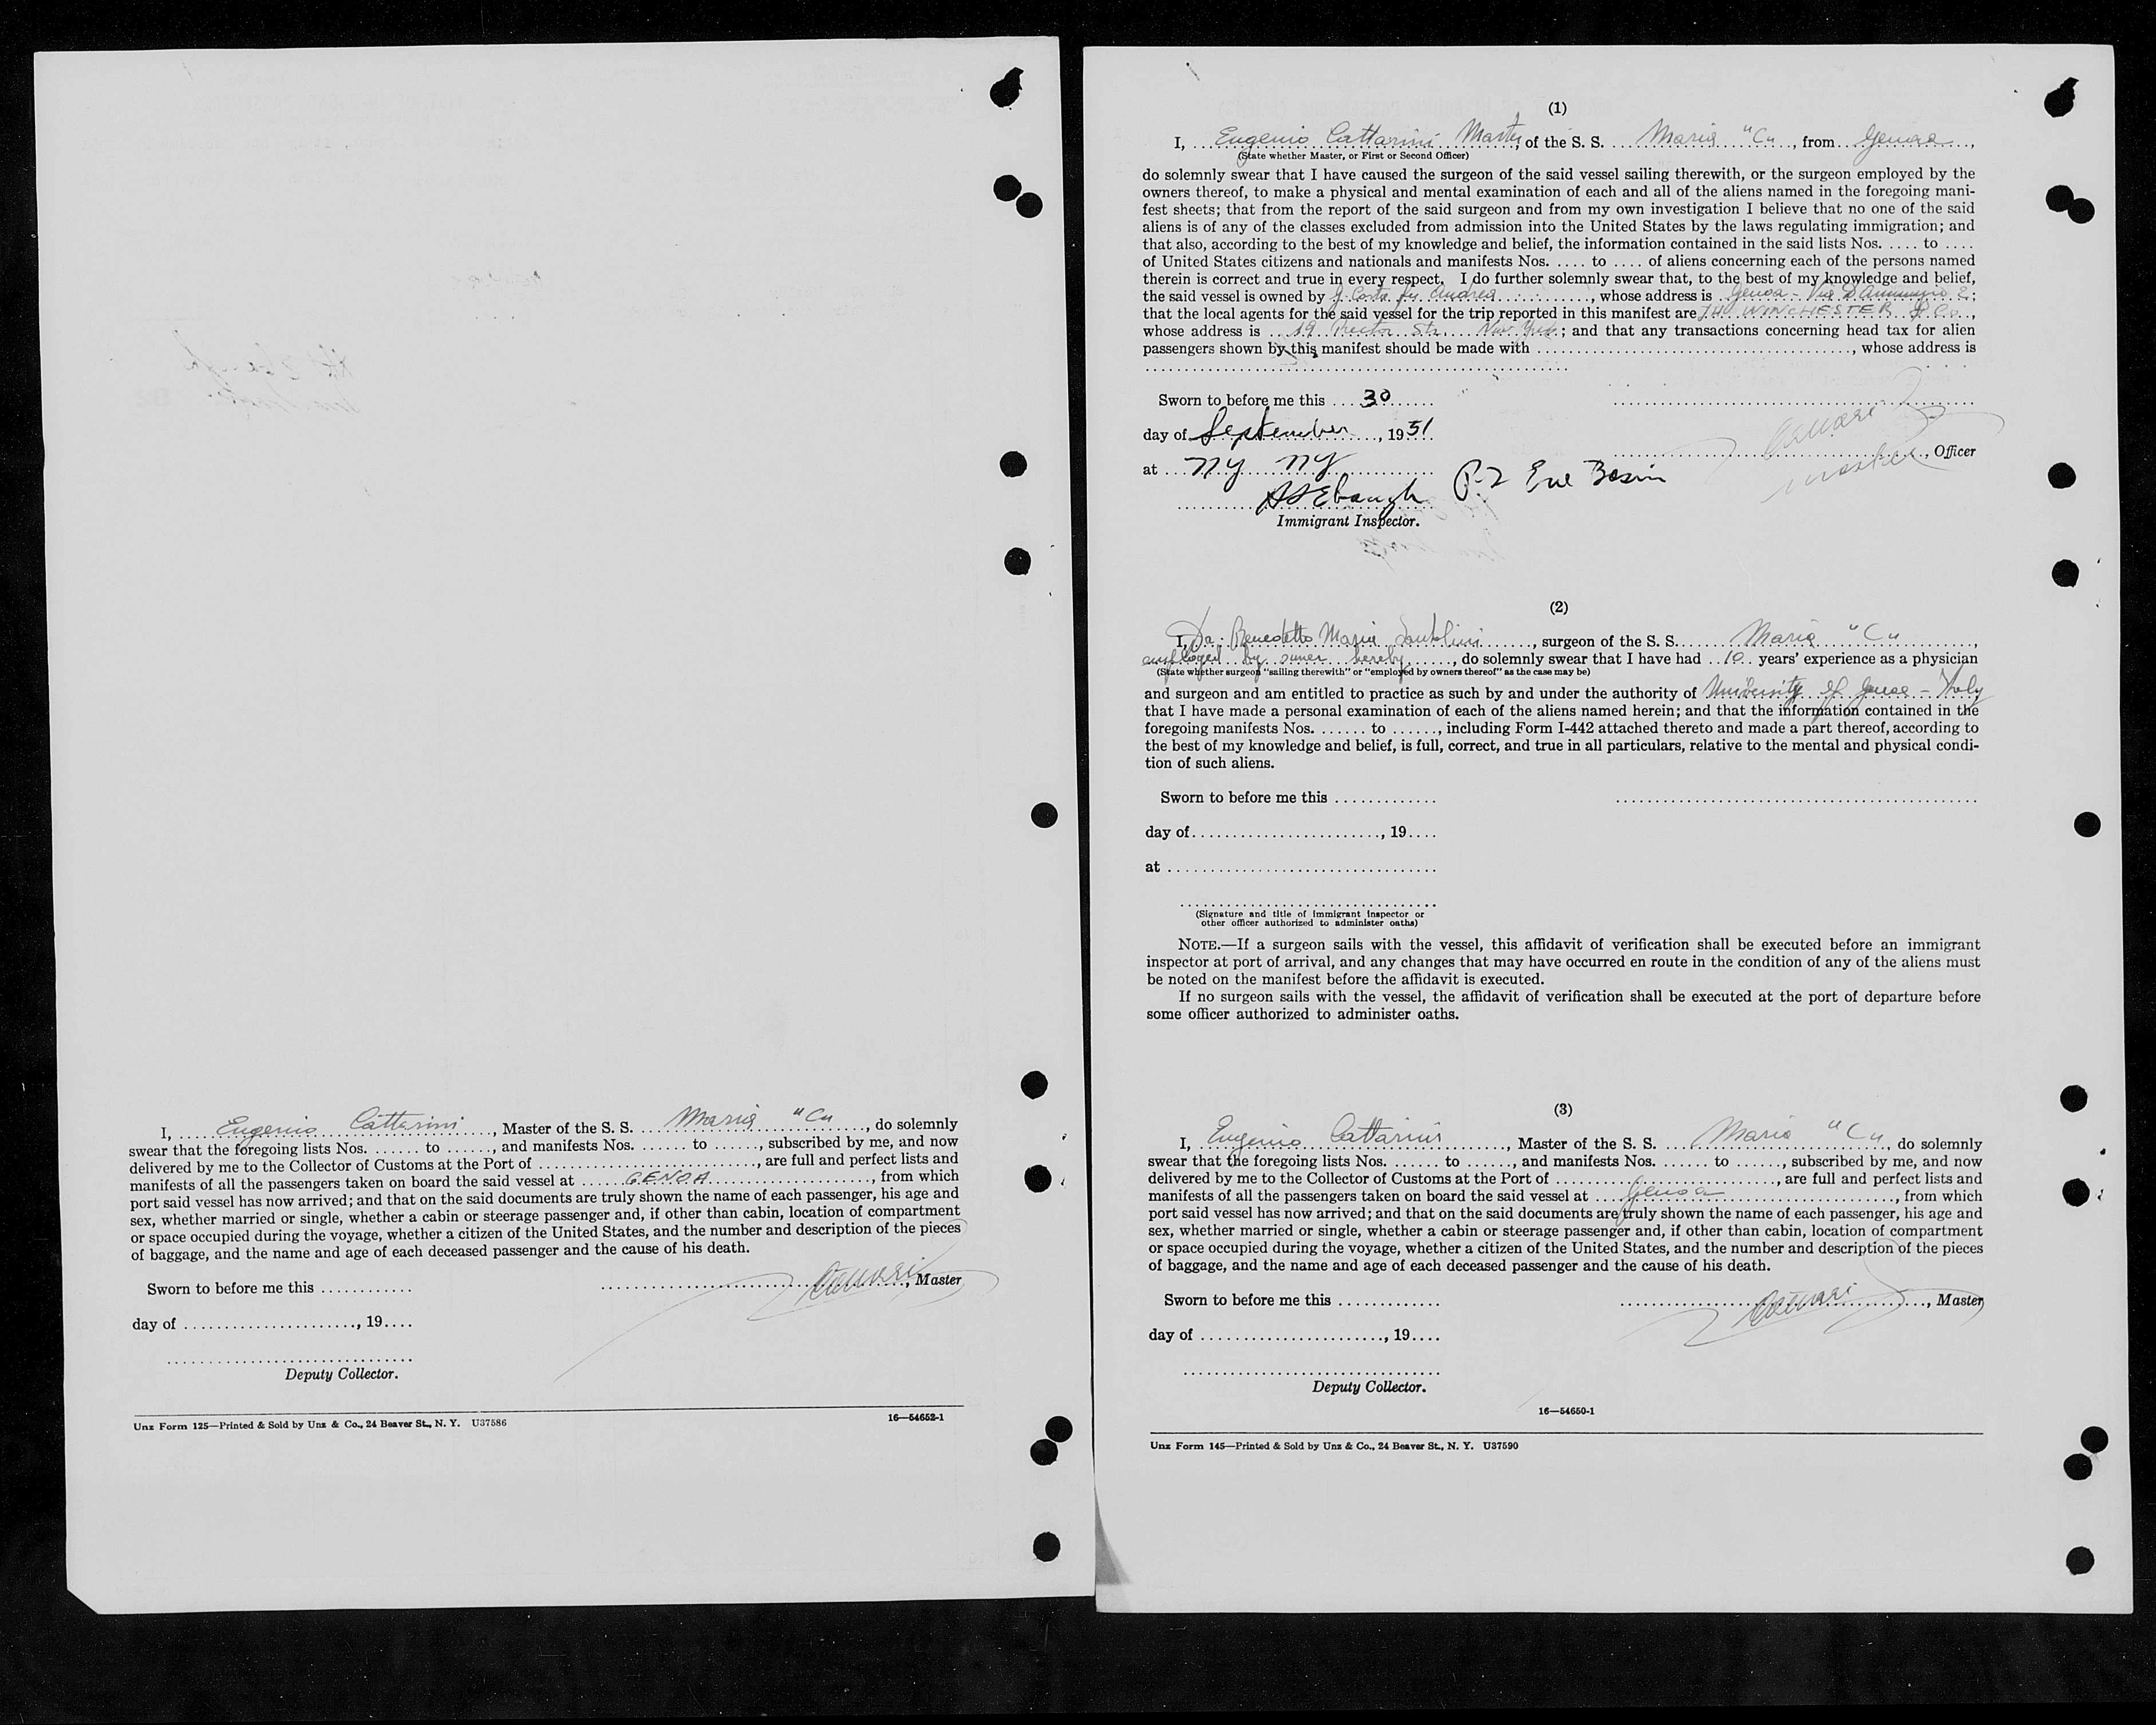 I, Eugenio Cattarini, Master of the S. S. Maria "C", do solemnly
swear that the foregoing lists Nos. ....... to ......., and manifests Nos. ....... to ......., subscribed by me, and now
delivered by me to the Collector of Customs at the Port of ................................, are full and perfect lists and
manifests of all the passengers taken on board the said vessel at ...... GENOA ......................, from which
port said vessel has now arrived; and that on the said documents are truly shown the name of each passenger, his age and
sex, whether married or single, whether a cabin or steerage passenger and, if other than cabin, location of compartment
or space occupied during the voyage, whether a citizen of the United States, and the number and description of the pieces
of baggage, and the name and age of each deceased passenger and the cause of his death.
Sworn to before me this ............
, Master
day of ........................, 19....
Deputy Collector.
Unz Form 125—Printed & Sold by Unz & Co., 24 Beaver St., N. Y. U37586
16—54652-1
(1)
I, Eugenio Cattarini Master, of the S. S. Maria "C", from Genoa,
(State whether Master, or First or Second Officer)
do solemnly swear that I have caused the surgeon of the said vessel sailing therewith, or the surgeon employed by the
owners thereof, to make a physical and mental examination of each and all of the aliens named in the foregoing mani-
fest sheets; that from the report of the said surgeon and from my own investigation I believe that no one of the said
aliens is of any of the classes excluded from admission into the United States by the laws regulating immigration; and
that also, according to the best of my knowledge and belief, the information contained in the said lists Nos. .... to ....
of United States citizens and nationals and manifests Nos. .... to .... of aliens concerning each of the persons named
therein is correct and true in every respect. I do further solemnly swear that, to the best of my knowledge and belief,
the said vessel is owned by G. Costa fu Andrea, whose address is Genoa - Via D'Annunzio 2;
that the local agents for the said vessel for the trip reported in this manifest are JH WINCHESTER & Co.,
whose address is 19 Rector Str. New York; and that any transactions concerning head tax for alien
passengers shown by this manifest should be made with ............................................, whose address is
Sworn to before me this ... 30 ......
day of September, 1951
, Officer
master
at NY NY
P-2 Erie Basin
Immigrant Inspector.
(2)
I, Dr. Benedetto Maria Santolini, surgeon of the S. S. Maria "C",
employed by owner hereby, do solemnly swear that I have had 10 years' experience as a physician
(State whether surgeon "sailing therewith" or "employed by owners thereof" as the case may be)
and surgeon and am entitled to practice as such by and under the authority of University of Genoa - Italy
that I have made a personal examination of each of the aliens named herein; and that the information contained in the
foregoing manifests Nos. ....... to ......, including Form I-442 attached thereto and made a part thereof, according to
the best of my knowledge and belief, is full, correct, and true in all particulars, relative to the mental and physical condi-
tion of such aliens.
Sworn to before me this .............
day of..........................., 19....
at .....................................
(Signature and title of immigrant inspector or
other officer authorized to administer oaths)
NOTE.—If a surgeon sails with the vessel, this affidavit of verification shall be executed before an immigrant
inspector at port of arrival, and any changes that may have occurred en route in the condition of any of the aliens must
be noted on the manifest before the affidavit is executed.
If no surgeon sails with the vessel, the affidavit of verification shall be executed at the port of departure before
some officer authorized to administer oaths.
(3)
I, Eugenio Cattarini, Master of the S. S. Maria "C", do solemnly
swear that the foregoing lists Nos. ....... to ......, and manifests Nos. ....... to ......, subscribed by me, and now
delivered by me to the Collector of Customs at the Port of ................................, are full and perfect lists and
manifests of all the passengers taken on board the said vessel at .... Genoa ........................, from which
port said vessel has now arrived; and that on the said documents are truly shown the name of each passenger, his age and
sex, whether married or single, whether a cabin or steerage passenger and, if other than cabin, location of compartment
or space occupied during the voyage, whether a citizen of the United States, and the number and description of the pieces
of baggage, and the name and age of each deceased passenger and the cause of his death.
Sworn to before me this .............
, Master
day of .........................., 19....
Deputy Collector.
16—54650-1
Unz Form 145—Printed & Sold by Unz & Co., 24 Beaver St., N. Y. U37590